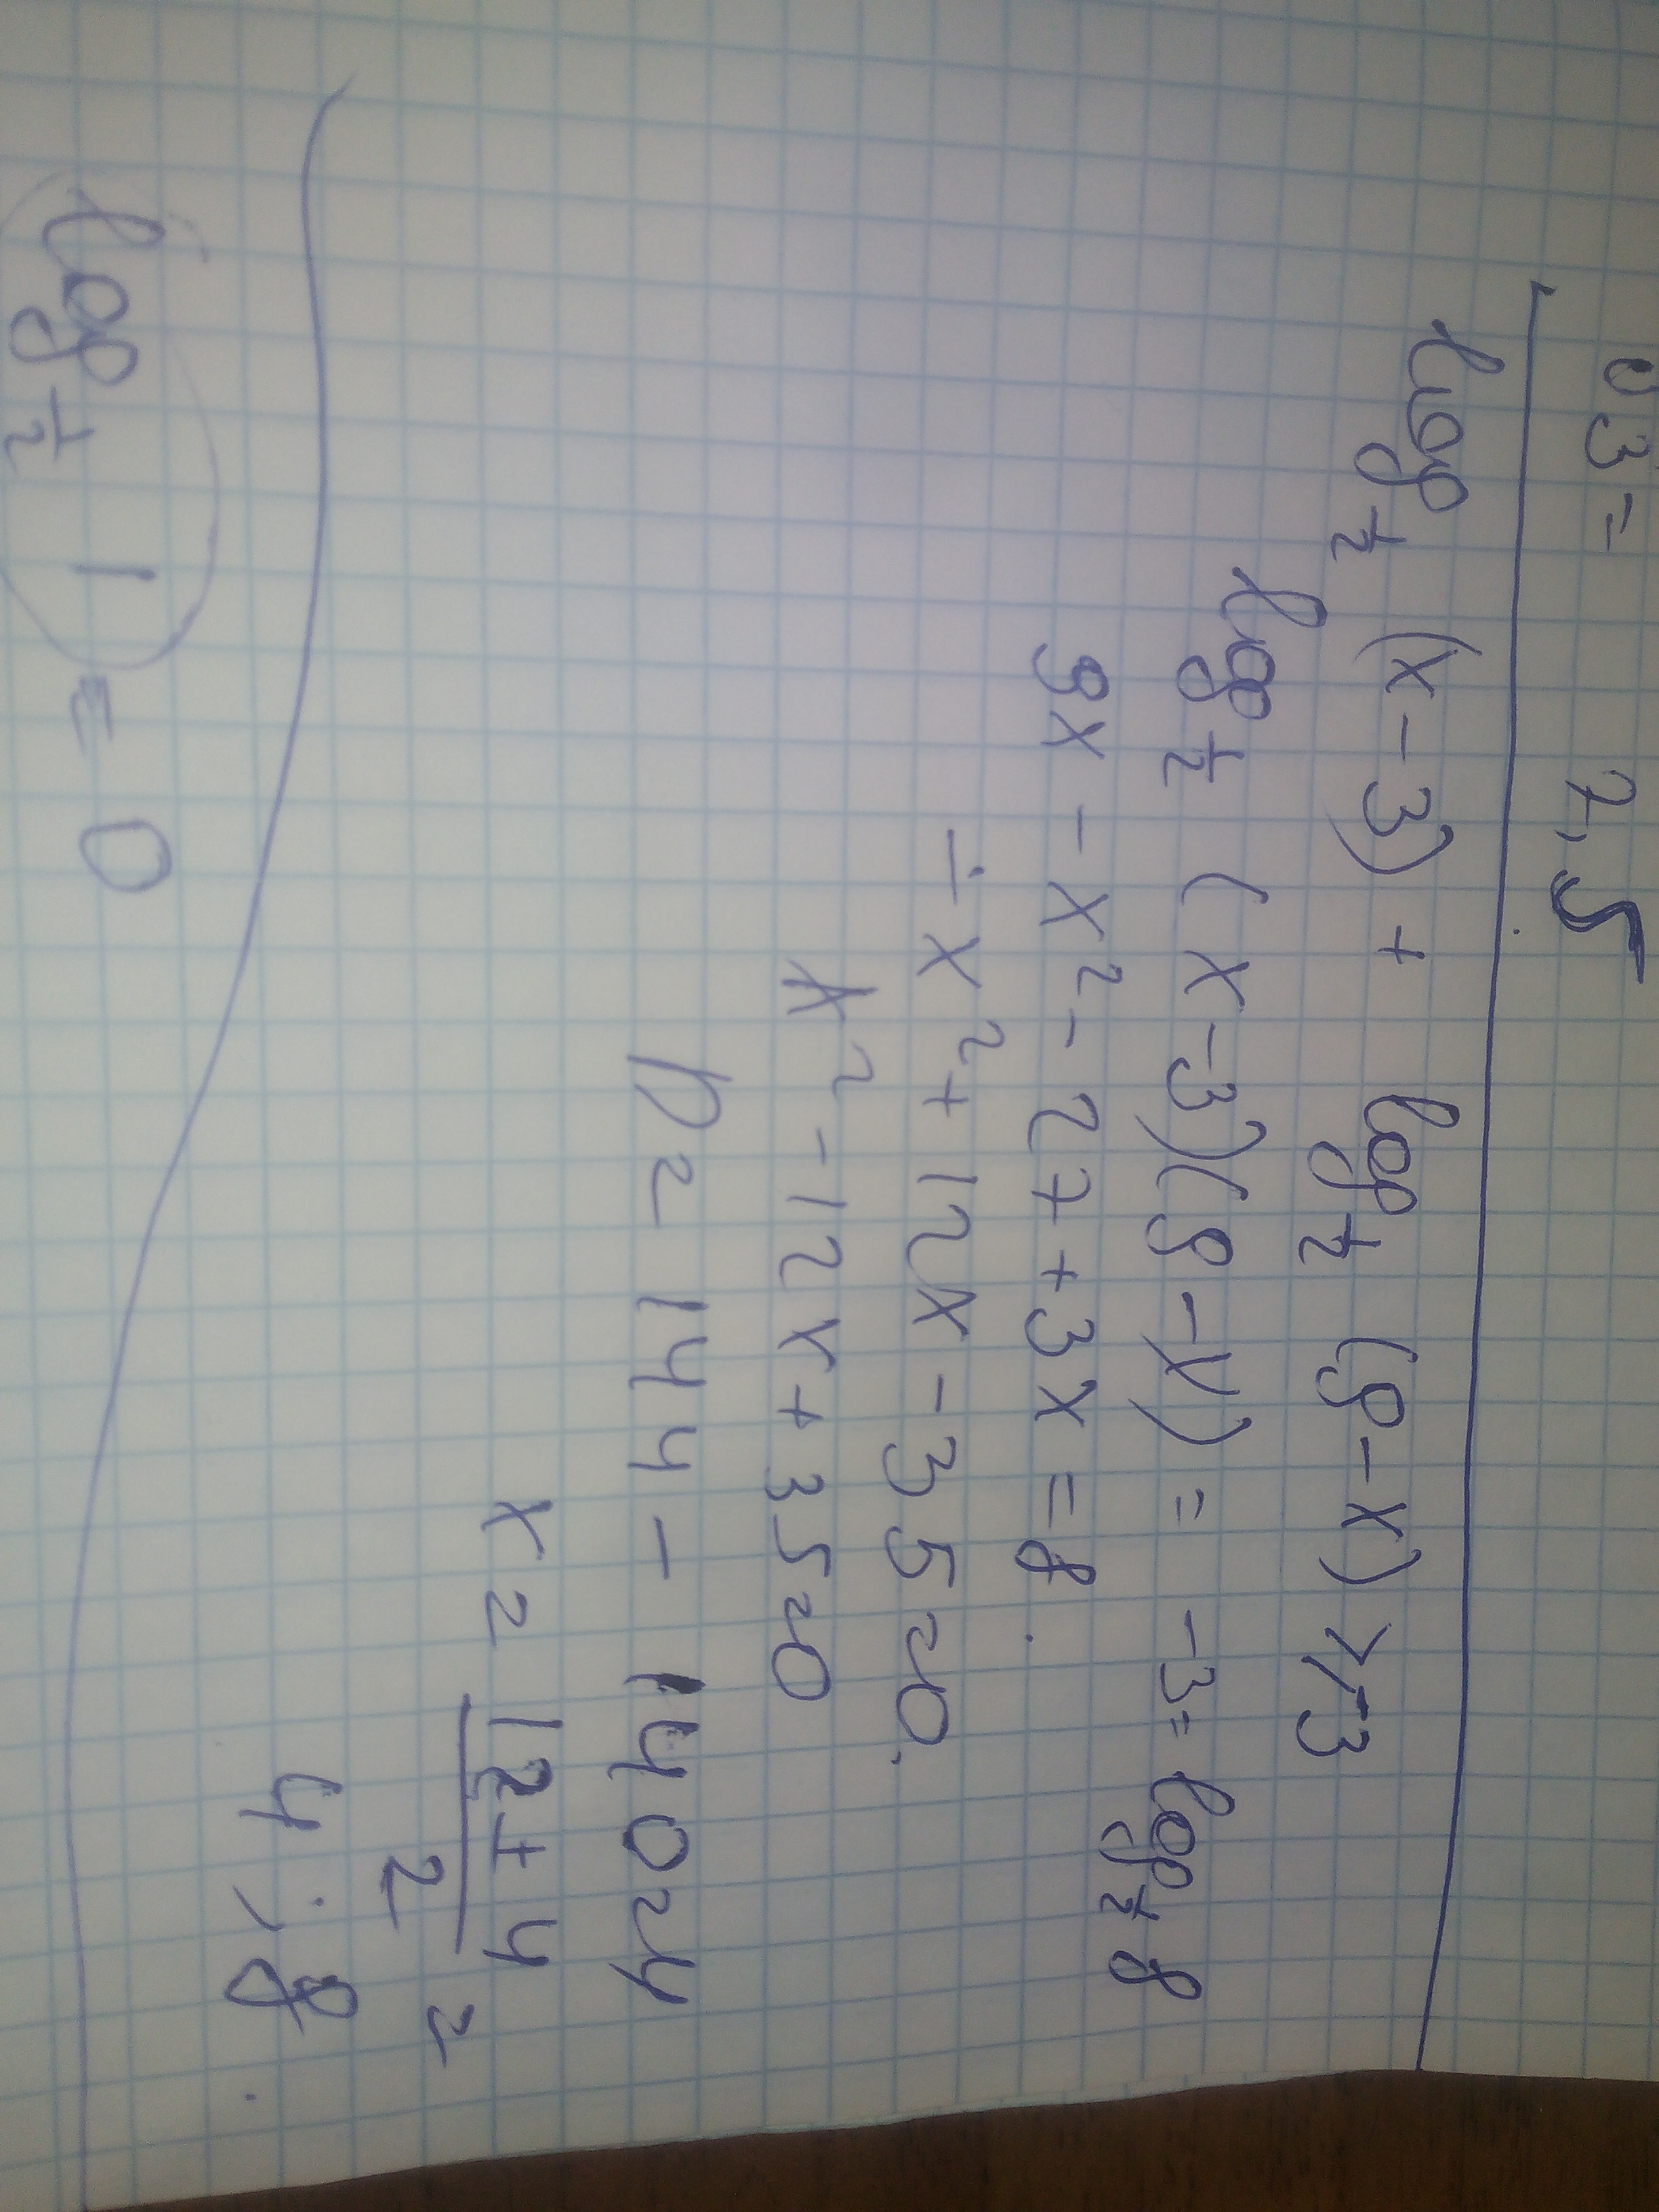 3 = 7,5
log 1/2 (x-3) + log 1/2 (9-x) ⩾ -3
log 1/2 (x-3)(9-x) = -3 = log 1/2 8
9x - x² - 27 + 3x = 8.
-x² + 12x - 35 = 0.
x² - 12x + 35 = 0
D = 144 - 140 = 4
x = (12 ± 4)/2 =
4 ; 8
log 1/2 1 = 0